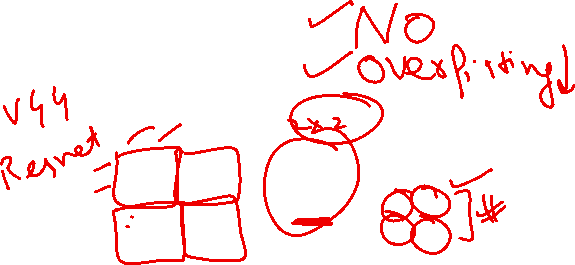 NO
Overfitting↓
VGG
Resnet
2x2
#